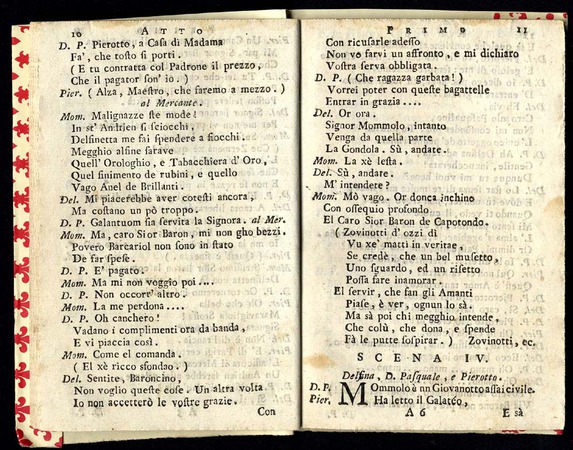 10 ATTO
D. P. Pierotto, a Casa di Madama
Fa', che tosto si porti.
( E tu contratta col Padrone il prezzo,
Che il pagator son' io. )
Pier. ( Alza, Maestro, che saremo a mezzo. )
al Mercante.
Mom. Malignazze ste mode!
In st' Andrien si sciocchi,
Delfinetta me fai spendere a fiocchi.
Megghio assine sarave
Quell' Orologhio, e Tabacchiera d' Oro,
Quel finimento de rubini, e quello
Vago Anel de Brillanti.
Del. Mi piacerebbe aver cotesti ancora,
Ma costano un pò troppo.
D. P. Galantuom sia servita la Signora. al Mer.
Mom. Ma, caro Sior Baron, mi non gho bezzi.
Povero Barcariol non sono in stato
De far spese.
D. P. E' pagato.
Mom. Ma mi non voggio poi....
D. P. Non occorr' altro.
Mom. La me perdona....
D. P. Oh canchero!
Vadano i complimenti ora da banda,
E vi piaccia così.
Mom. Come el comanda.
( El xè ricco sfondao. )
Del. Sentite, Baroncino,
Non voglio queste cose. Un altra volta
Io non accetterò le vostre grazie.
Con
PRIMO 11
Con ricusarle adesso
Non vo farvi un affronto, e mi dichiaro
Vostra serva obbligata.
D. P. ( Che ragazza garbata! )
Vorrei poter con queste bagattelle
Entrar in grazia....
Del. Or ora.
Signor Mommolo, intanto
Venga da quella parte
La Gondola. Sù, andate.
Mom. La xè lesta.
Del. Sù, andate.
M' intendere?
Mom. Mò vago. Or donca inchino
Con ossequio profondo
El Caro Sior Baron de Capotondo.
( Zovinotti d' ozzi dì
Vu xe' matti in veritae,
Se credè, che un bel musetto,
Uno sguardo, ed un risetto
Possa fare inamorar.
El servir, che fan gli Amanti
Piase, è ver, ognun lo sà.
Ma sà poi chi megghio intende,
Che colù, che dona, e spende
Fà le putte sospirar. ) Zovinotti, ec.
SCENA IV.
Delfina, D. Pasquale, e Pierotto.
D. P. MOmmolo è nn Giovanotto assai civile.
Pier. Ha letto il Galatéo,
A 6 E sà